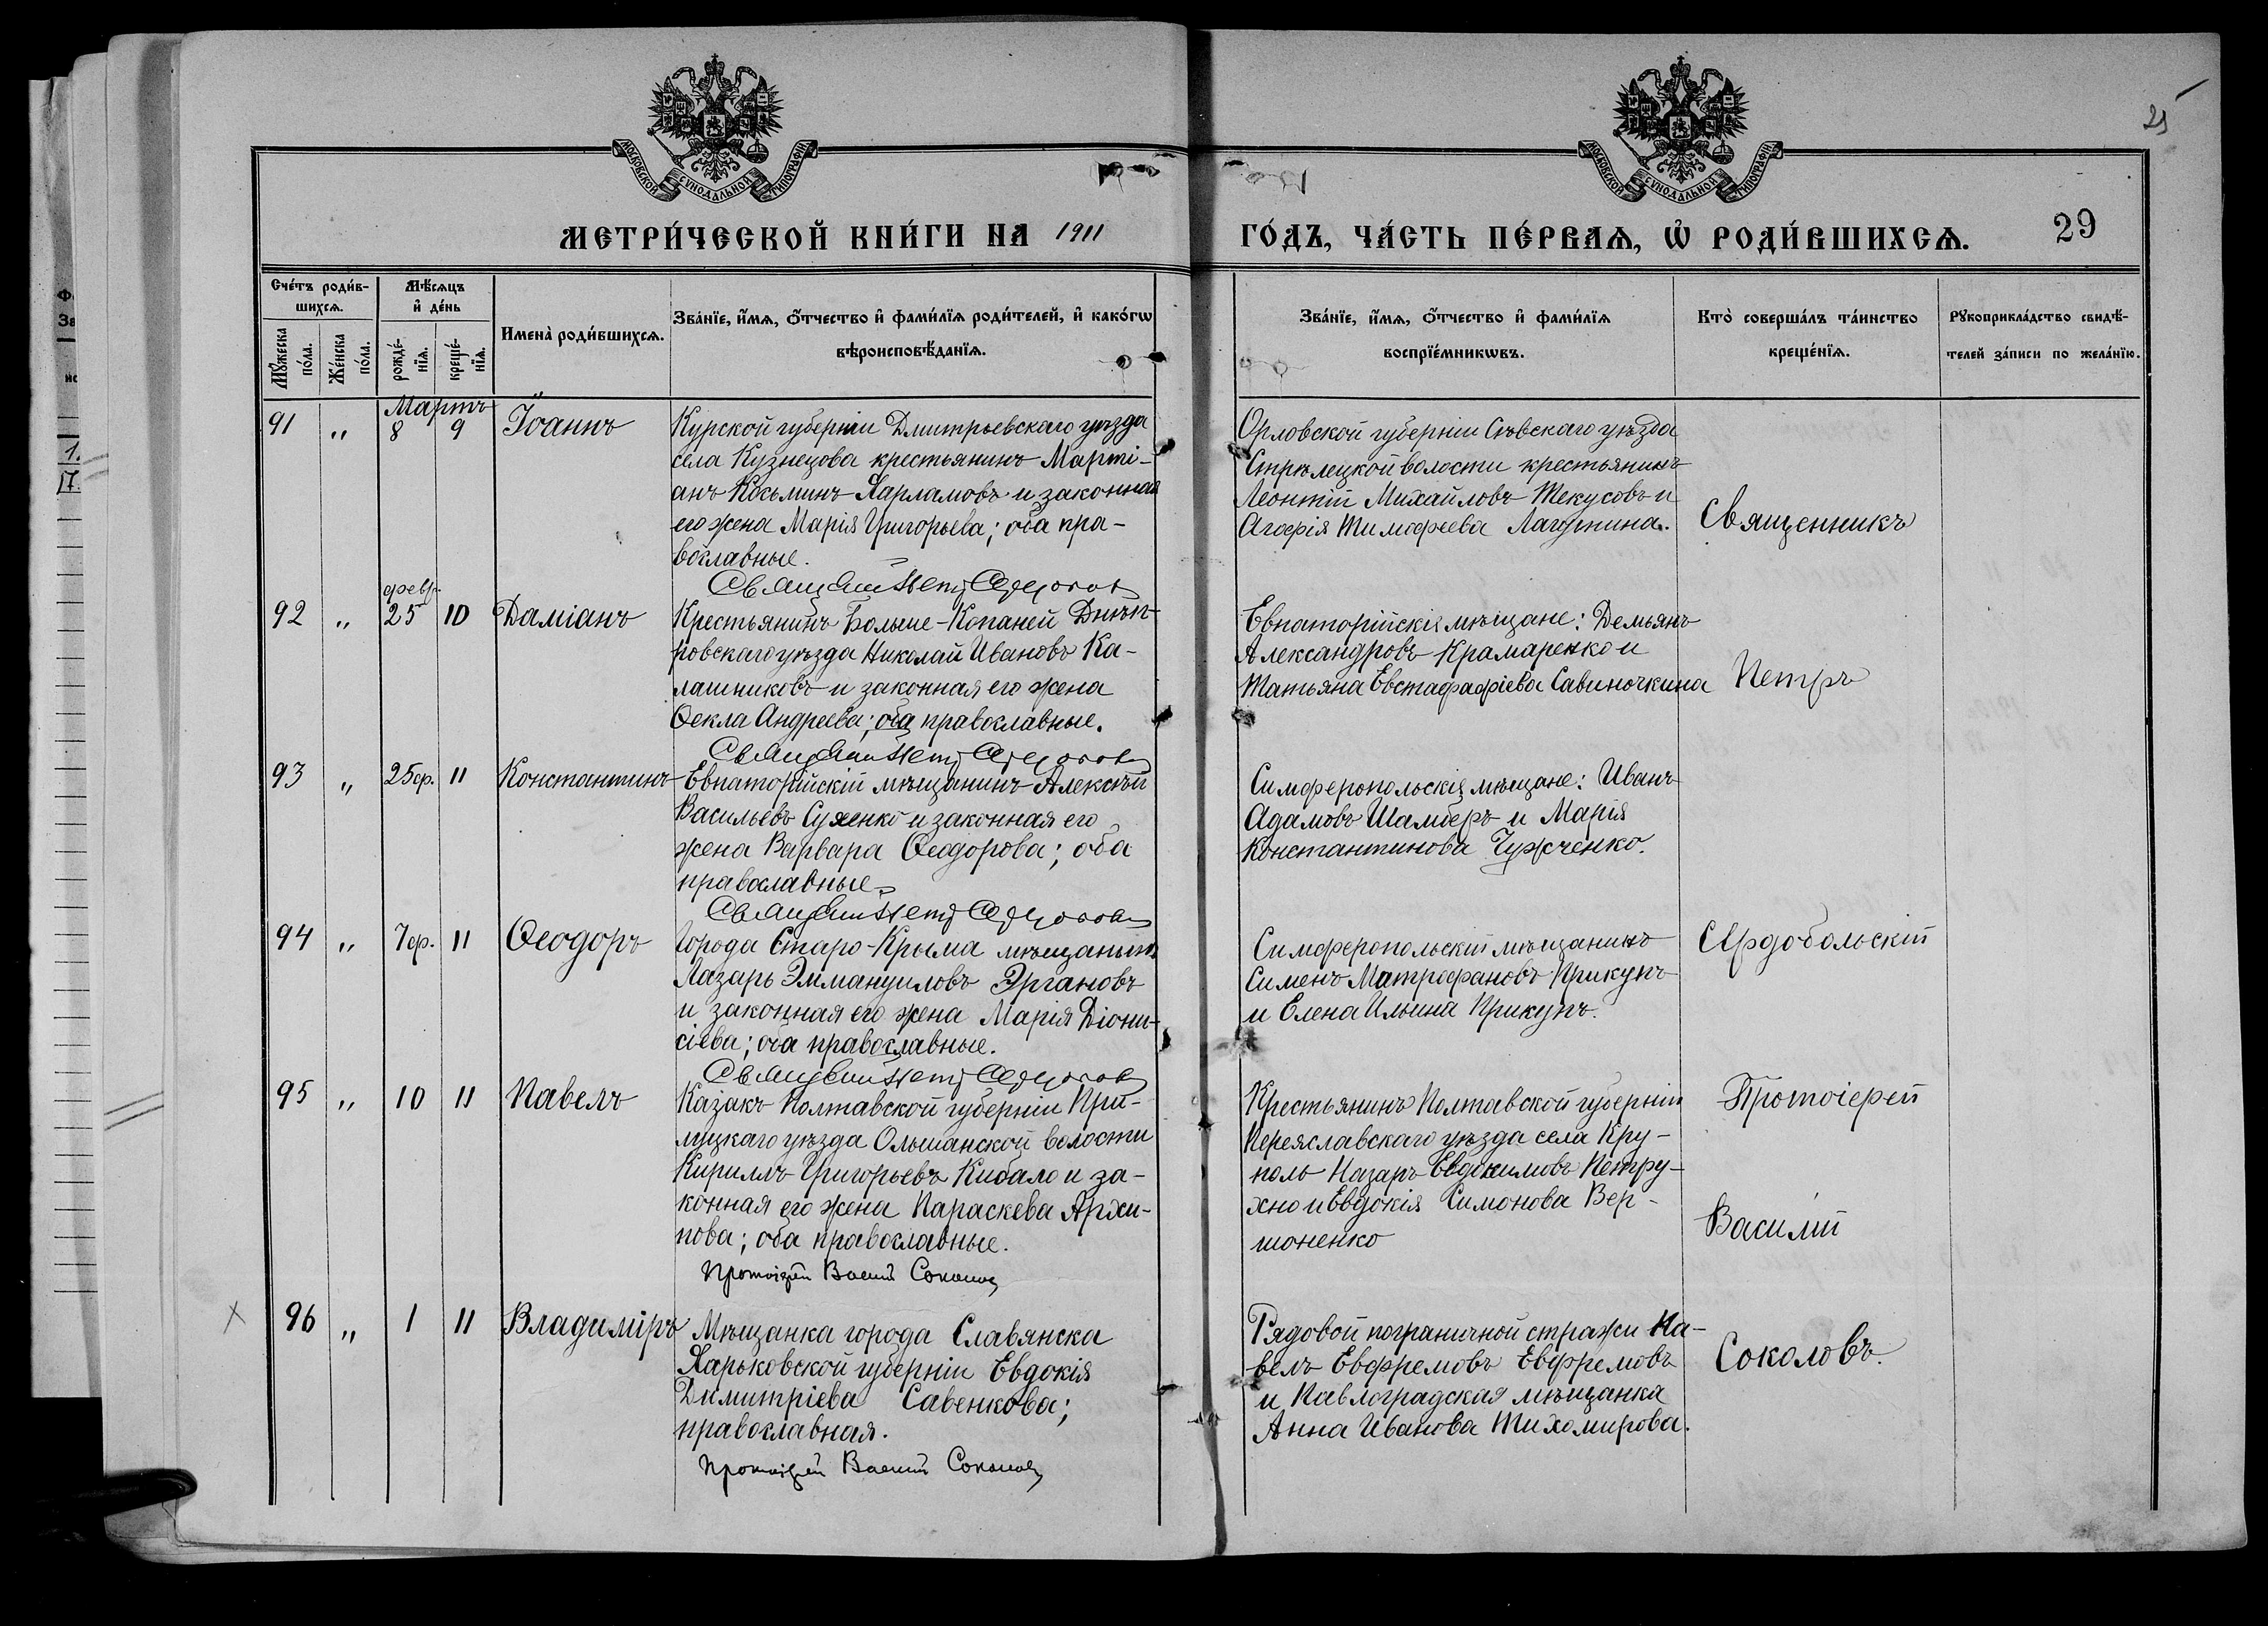 МОСКОВСКОЙ СѴНОДАЛЬНОЙ ТИПОГРАФІИ
МОСКОВСКОЙ СѴНОДАЛЬНОЙ ТИПОГРАФІИ
25
МЕТРИ́ЧЕСКОЙ КНИ́ГИ НА 1911
ГО́ДЪ, ЧА́СТЬ ПЕ́РВАѦ, Ѡ҆ РОДИ́ВШИХСѦ.
29
Сче́тъ роди́в-
шихсѧ.
Мꙋ́жеска по́ла.
Же́нска по́ла.
Мѣ́сѧцъ
и҆ де́нь
рожде́-
нїѧ.
креще́-
нїѧ.
Имена̀ роди́вшихсѧ.
Зва́нїе, и҆́мѧ, ѻ҆́тчество и҆ фами́лїѧ роди́телей, и҆ како́гѡ
вѣроисповѣ́данїѧ.
Зва́нїе, и҆́мѧ, ѻ҆́тчество и҆ фами́лїѧ
воспрїе́мникѡвъ.
Кто̀ соверша́лъ та́инство
креще́нїѧ.
Рꙋкоприкла́дство свидѣ́-
телей за́писи по жела́нїю.
Мартъ
91 " 8 9 Іоаннъ
Курской губерніи Дмитрьевскаго уѣзда
села Кузнецова крестьянинъ Марті-
анъ Косьминъ Харламовъ и законная
его жена Марія Григорьева; оба пра-
вославные.
Орловской губерніи Сѣвскаго уѣзда
Стрѣлецкой волости крестьянинъ
Леонтій Михайловъ Текусовъ и
Агафія Тимофеева Лагутина.
Священникъ
февр.
92 " 25 10 Даміанъ
Крестьянинъ Больше-Копаней Днѣп-
ровскаго уѣзда Николай Ивановъ Ка-
лашниковъ и законная его жена
Ѳекла Андреева; оба православные.
Евпаторійскіе мѣщане: Демьянъ
Александровъ Крамаренко и
Татьяна Евстафафіева Савиночкина
Петръ
93 " 25ф. 11 Константинъ
Евпаторійскій мѣщанинъ Алексѣй
Васильевъ Сухенко и законная его
жена Варвара Ѳеодорова; оба
православные.
Симферопольскіе мѣщане: Иванъ
Адамовъ Шамберъ и Марія
Константинова Чужченко.
94 " 7ф. 11 Ѳеодоръ
Города Старо-Крыма мѣщанинъ
Лазарь Эммануиловъ Эргановъ
и законная его жена Марія Діони-
сіева; оба православные.
Симферопольскій мѣщанинъ
Сименъ Матрофановъ Прикупъ
и Елена Ильина Прикупъ.
Сердобольскій
95 " 10 11 Павелъ
Казакъ Полтавской губерніи При-
луцкаго уѣзда Ольшанской волости
Кириллъ Григорьевъ Кибало и за-
конная его жена Параскева Архи-
пова; оба православные.
Протоіерей Василій Соколовъ
Крестьянинъ Полтавской губерніи
Переяславскаго уѣзда села Кру-
поль Назаръ Евдокимовъ Петру-
хно и Евдокія Симонова Вер-
шоненко
Протоіерей
Василій
96 " 1 11 Владиміръ
Мѣщанка города Славянска
Харьковской губерніи Евдокія
Димитріева Савенкова;
православная.
Протоіерей Василій Соколовъ
Рядовой пограничной стражи Па-
велъ Евфремовъ Евфремовъ
и Павлоградская мѣщанка
Анна Иванова Тихомирова.
Соколовъ.